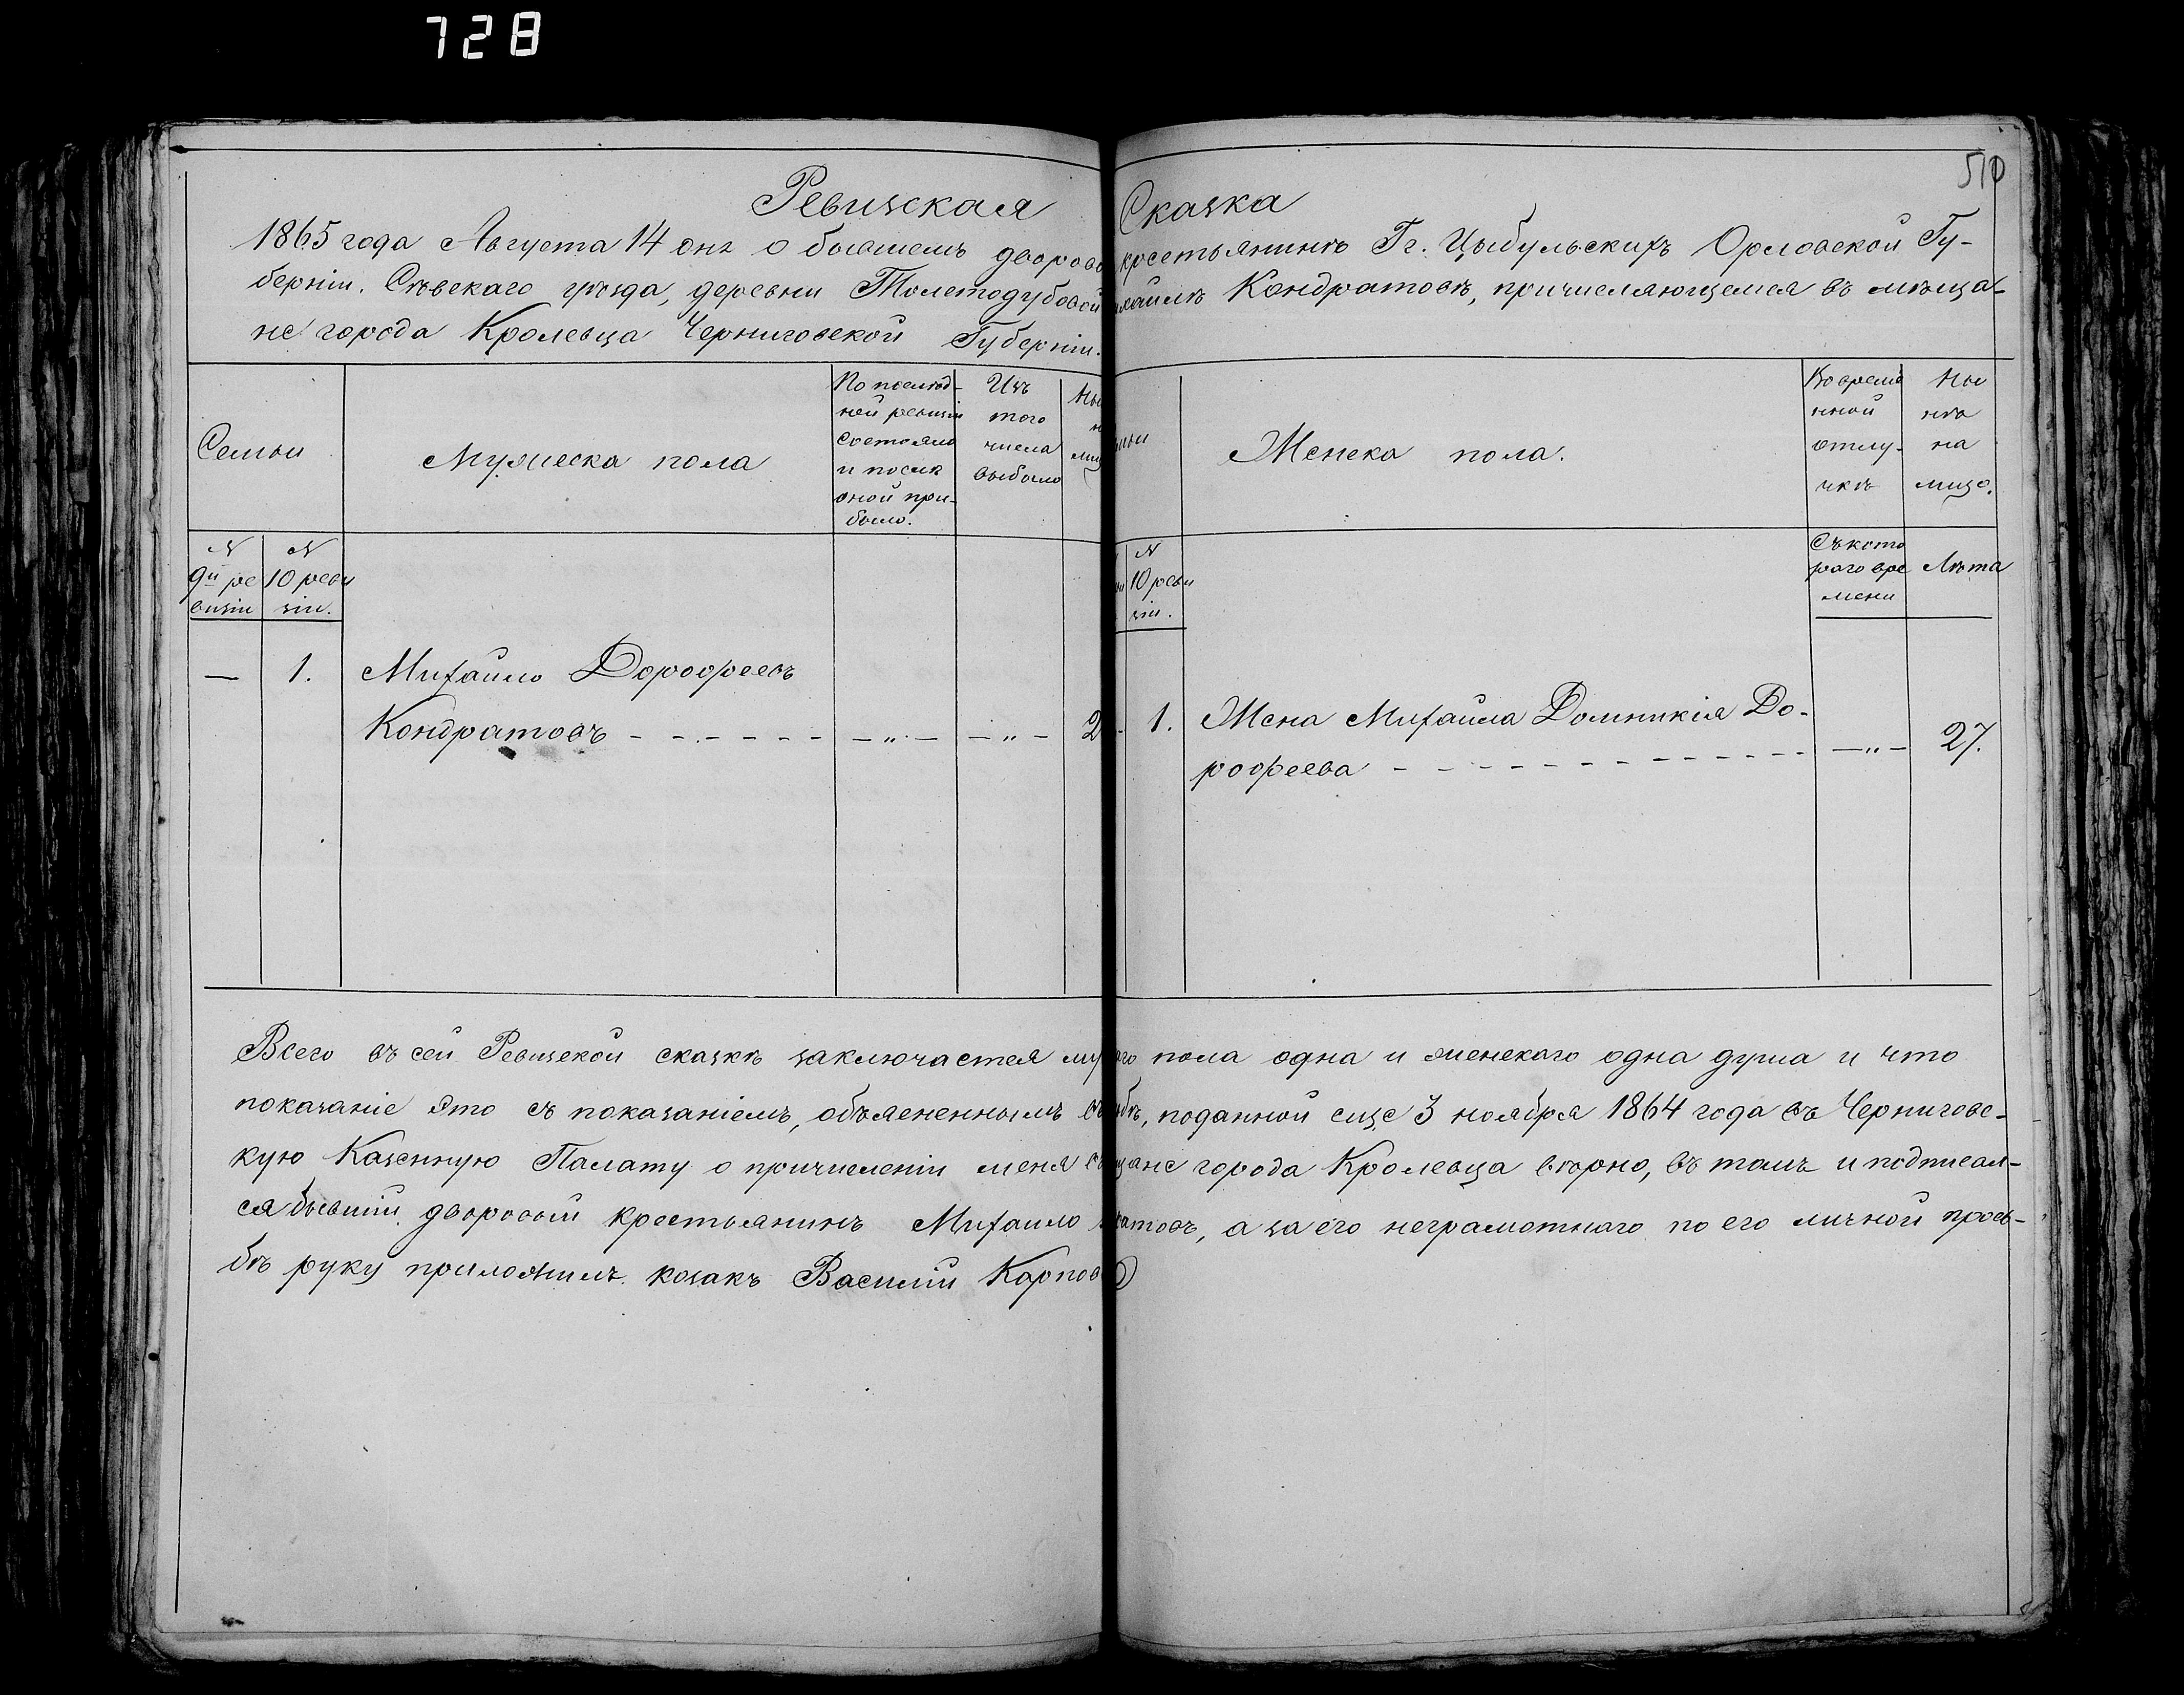 728
510
Ревизская Сказка
1865 года Августа 14 дня о бывшемъ дворово крестьянинѣ Гг. Цыбульскихъ Орловской Гу-
берніи. Сѣвскаго уѣзда, деревни Толстодубовой Кондратовѣ, причисляющемся въ мѣща-
не города Кролевца Черниговской Губерніи.
Семьи
Мужеска пола
По послѣд-
ней ревизіи
состояло
и послѣ
оной при-
было.
Изъ
того
числа
выбыло
Женска пола.
Во време
нной
отлу-
чкѣ
Ны
нѣ
на
лицо.
N
9й ре
визіи
N
10 реви
зіи.
N
10 реви
зіи.
Съ кото
раго вре
мени
Лѣта
— 1. Михайло Дорофеевъ
Кондратовъ - - - - - - - — „ — — „ — 2
1. Жена Михайла Домникія До-
рофеева - - - - - - - - - - — „ — 27.
Всего въ сей Ревизской сказкѣ заключается му аго пола одна и женскаго одна душа и что
показаніе это съ показаніемъ, объясненнымъ въ бѣ, поданной еще 3 ноября 1864 года въ Черниговс-
кую Казенную Палату о причисленіи меня въ щане города Кролевца вѣрно, въ томъ и подписал-
ся бывшій дворовый крестьянинъ Михайло ратовъ, а за его неграмотнаго по его личной прось-
бѣ руку приложилъ козакъ Василій Карпов